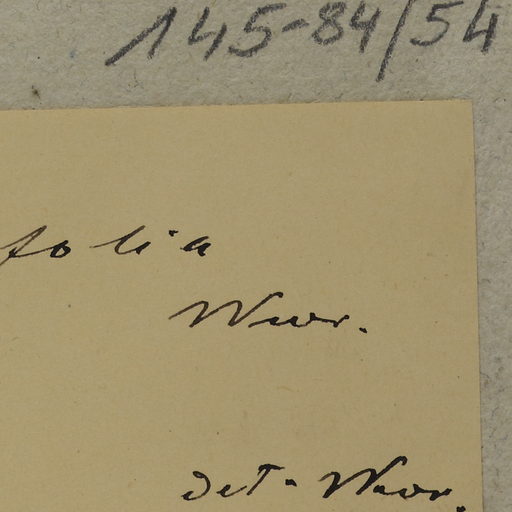 145-84/54
folia
Wwr.
det. Wwr.